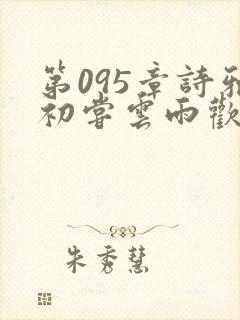 第095章詩雅
初嘗雲雨歡
朱秀慧